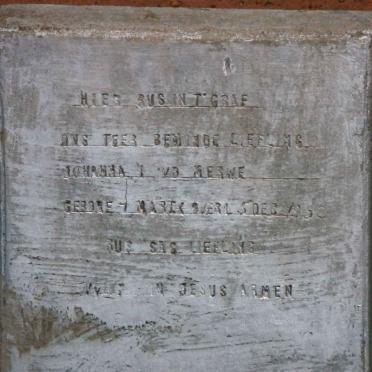 HIER RUS IN T GRAF
ONS TEER BEMINDE LIEFLING
JOHANNA J VD MERWE
GEBORE 7 MAREK OVERL 5 DES
RUS SAG LIEFLING
IN JESUS ARMEN